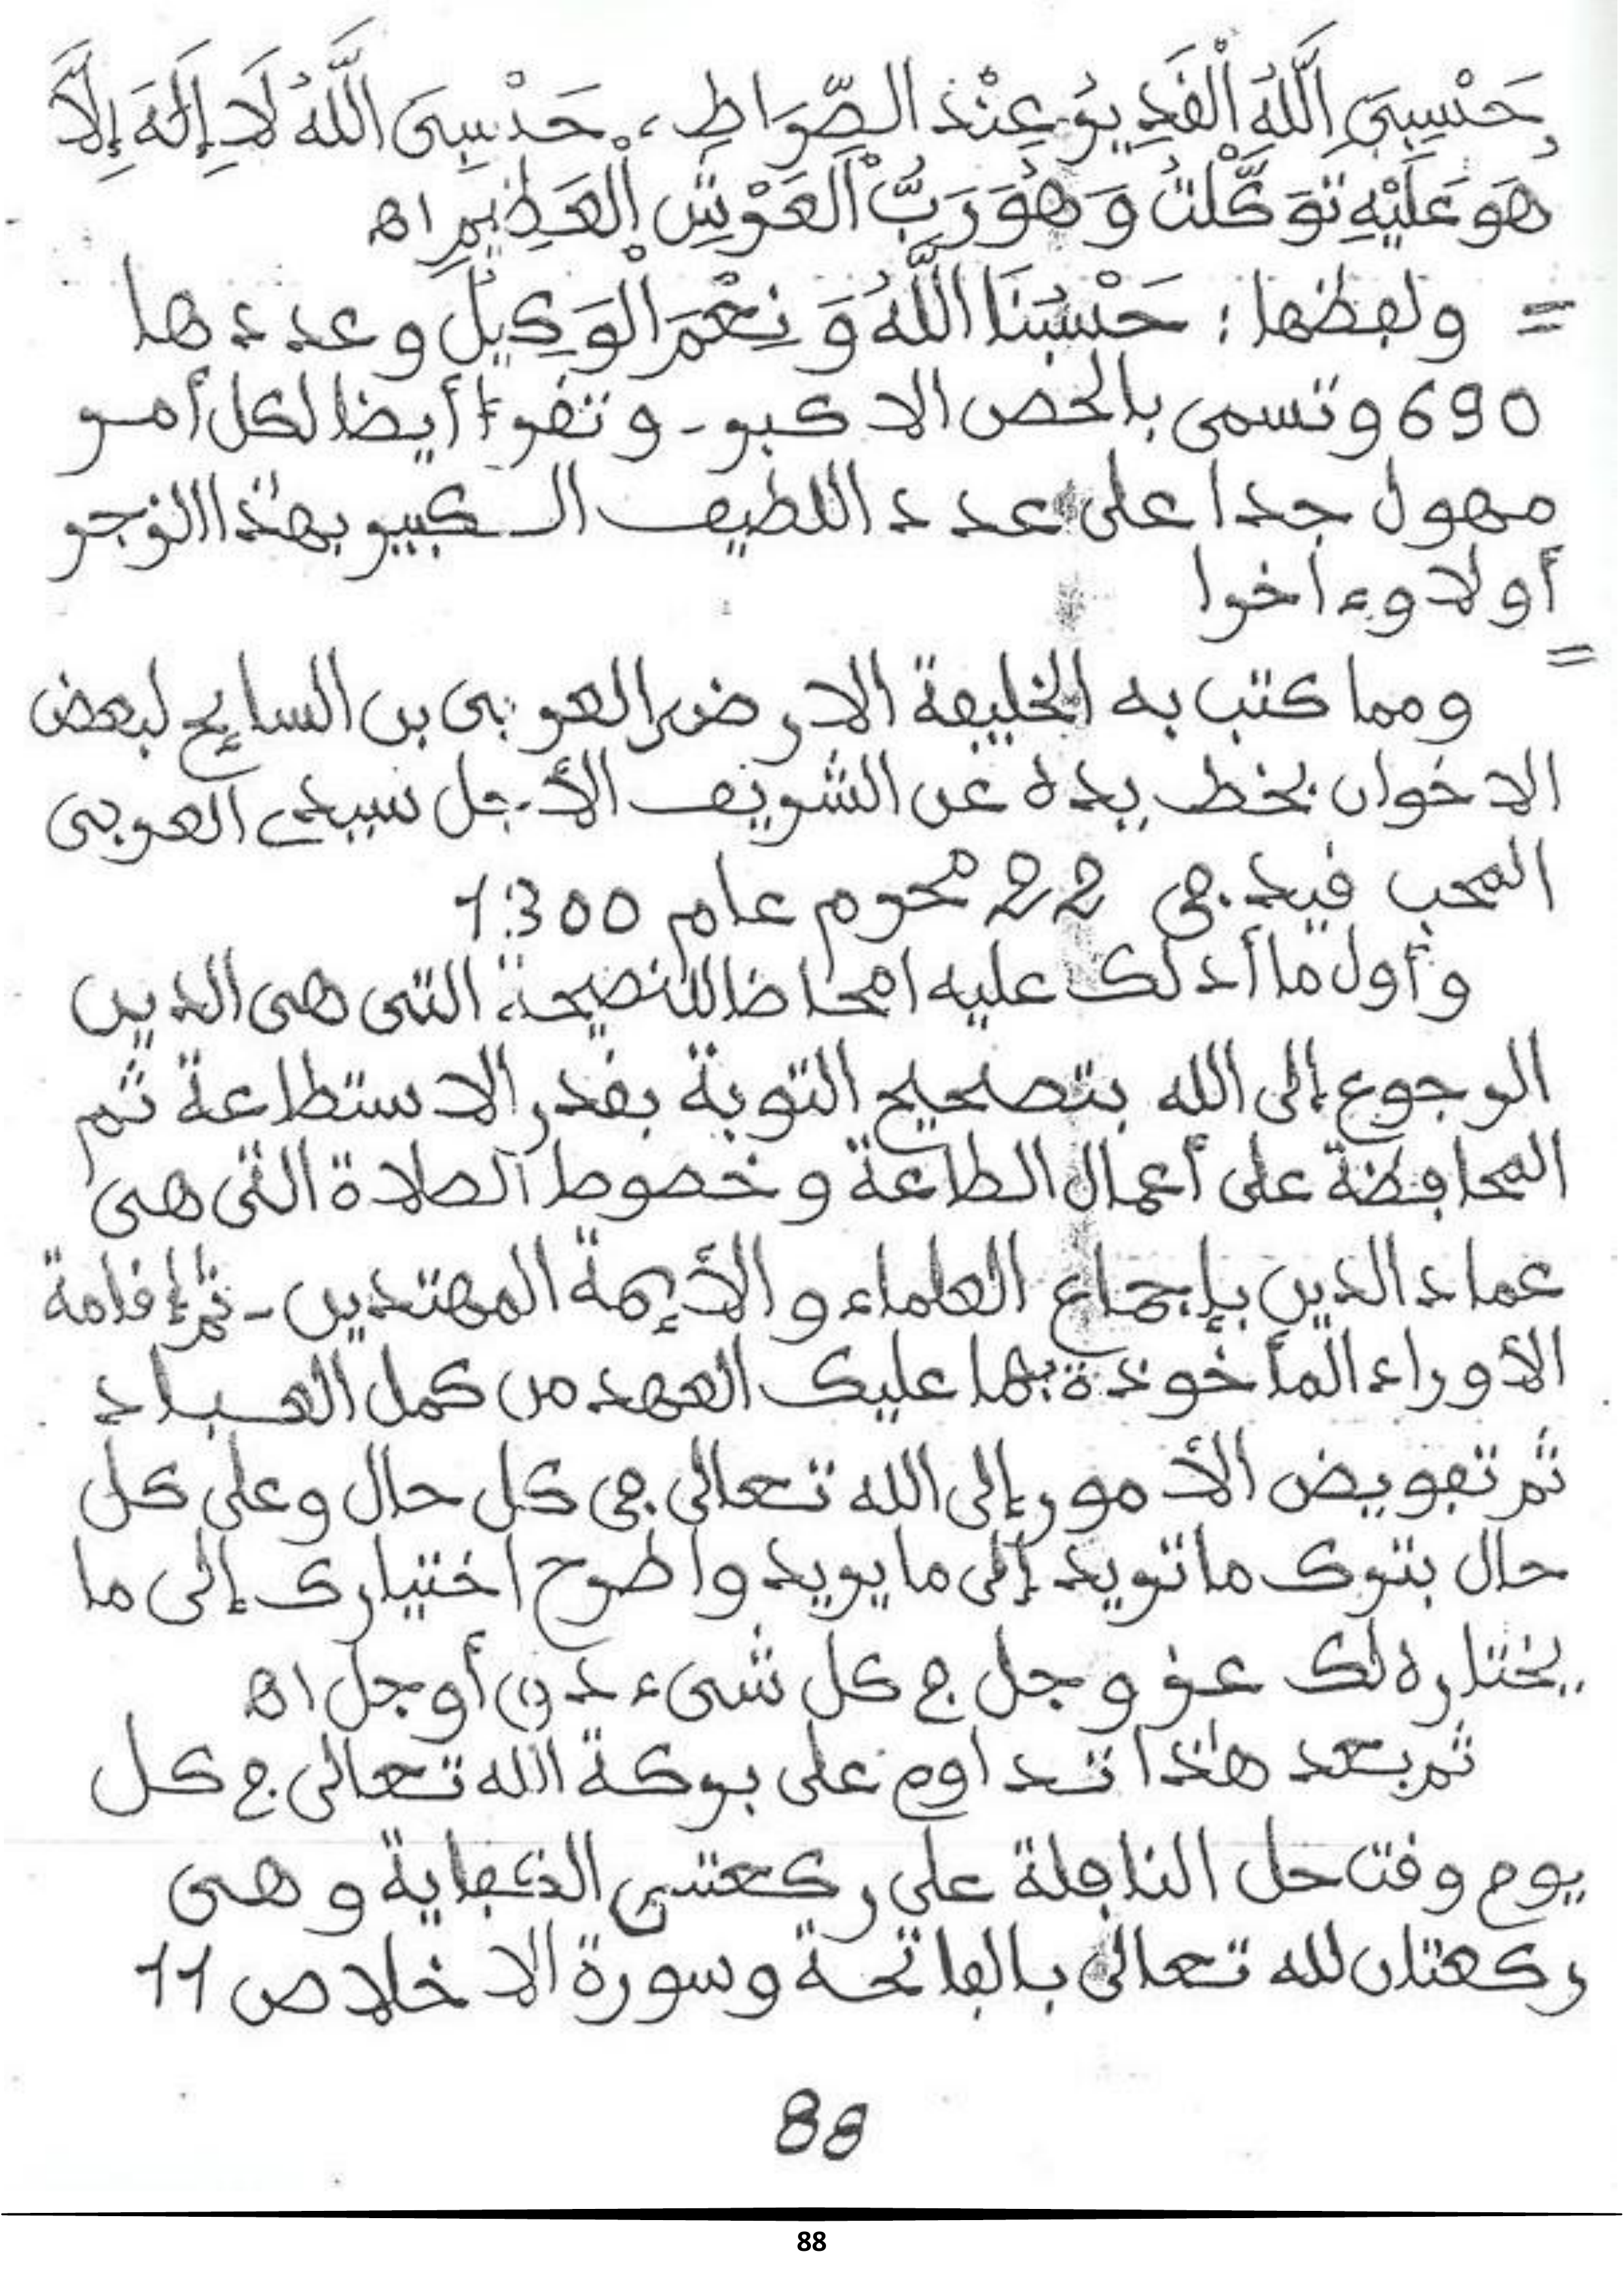 حَسْبِيَ اللَّهُ الْقَدِيرُ عِنْدَ الصِّرَاطِ، حَسْبِيَ اللَّهُ لَا إِلَهَ إِلَّا
هُوَ عَلَيْهِ تَوَكَّلْتُ وَهُوَ رَبُّ الْعَرْشِ الْعَظِيمِ اه
= ولفظها : حَسْبُنَا اللَّهُ وَنِعْمَ الْوَكِيلُ وعددها
690 وتسمى بالحصن الاكبر - وتقرأ أيضا لكل أمر
مهول جدا على عدد اللطيف الكبير بهذا الزجر
أولا وءاخرا
= ومما كتب به الخليفة الارضى العربي بن السايح لبعض
الاخوان بخط يده عن الشريف الأجل سيدي العربي
المحب فيد في 22 محرم عام 1300
وأول ما أدلك عليه امحاضا للنصيحة التي هي الدين
الرجوع إلى الله بتصحيح التوبة بقدر الاستطاعة ثم
المحافظة على أعمال الطاعة وخصوصا الصلاة التي هي
عماد الدين بإجماع العلماء والأيمة المهتدين - ثم إقامة
الأوراد المأخوذة بها عليك العهد من كمل العباد
ثم تفويض الأمور إلى الله تعالى في كل حال وعلى كل
حال بترك ما تريد إلى ما يريد واطرح اختيارك إلى ما
يختاره لك عز وجل في كل شيء دق أو جل اه
ثم بعد هذا تداوم على بركة الله تعالى في كل
يوم وقت حل النافلة على ركعتي الكفاية وهي
ركعتان لله تعالى بالفاتحة وسورة الاخلاص 11
88
88